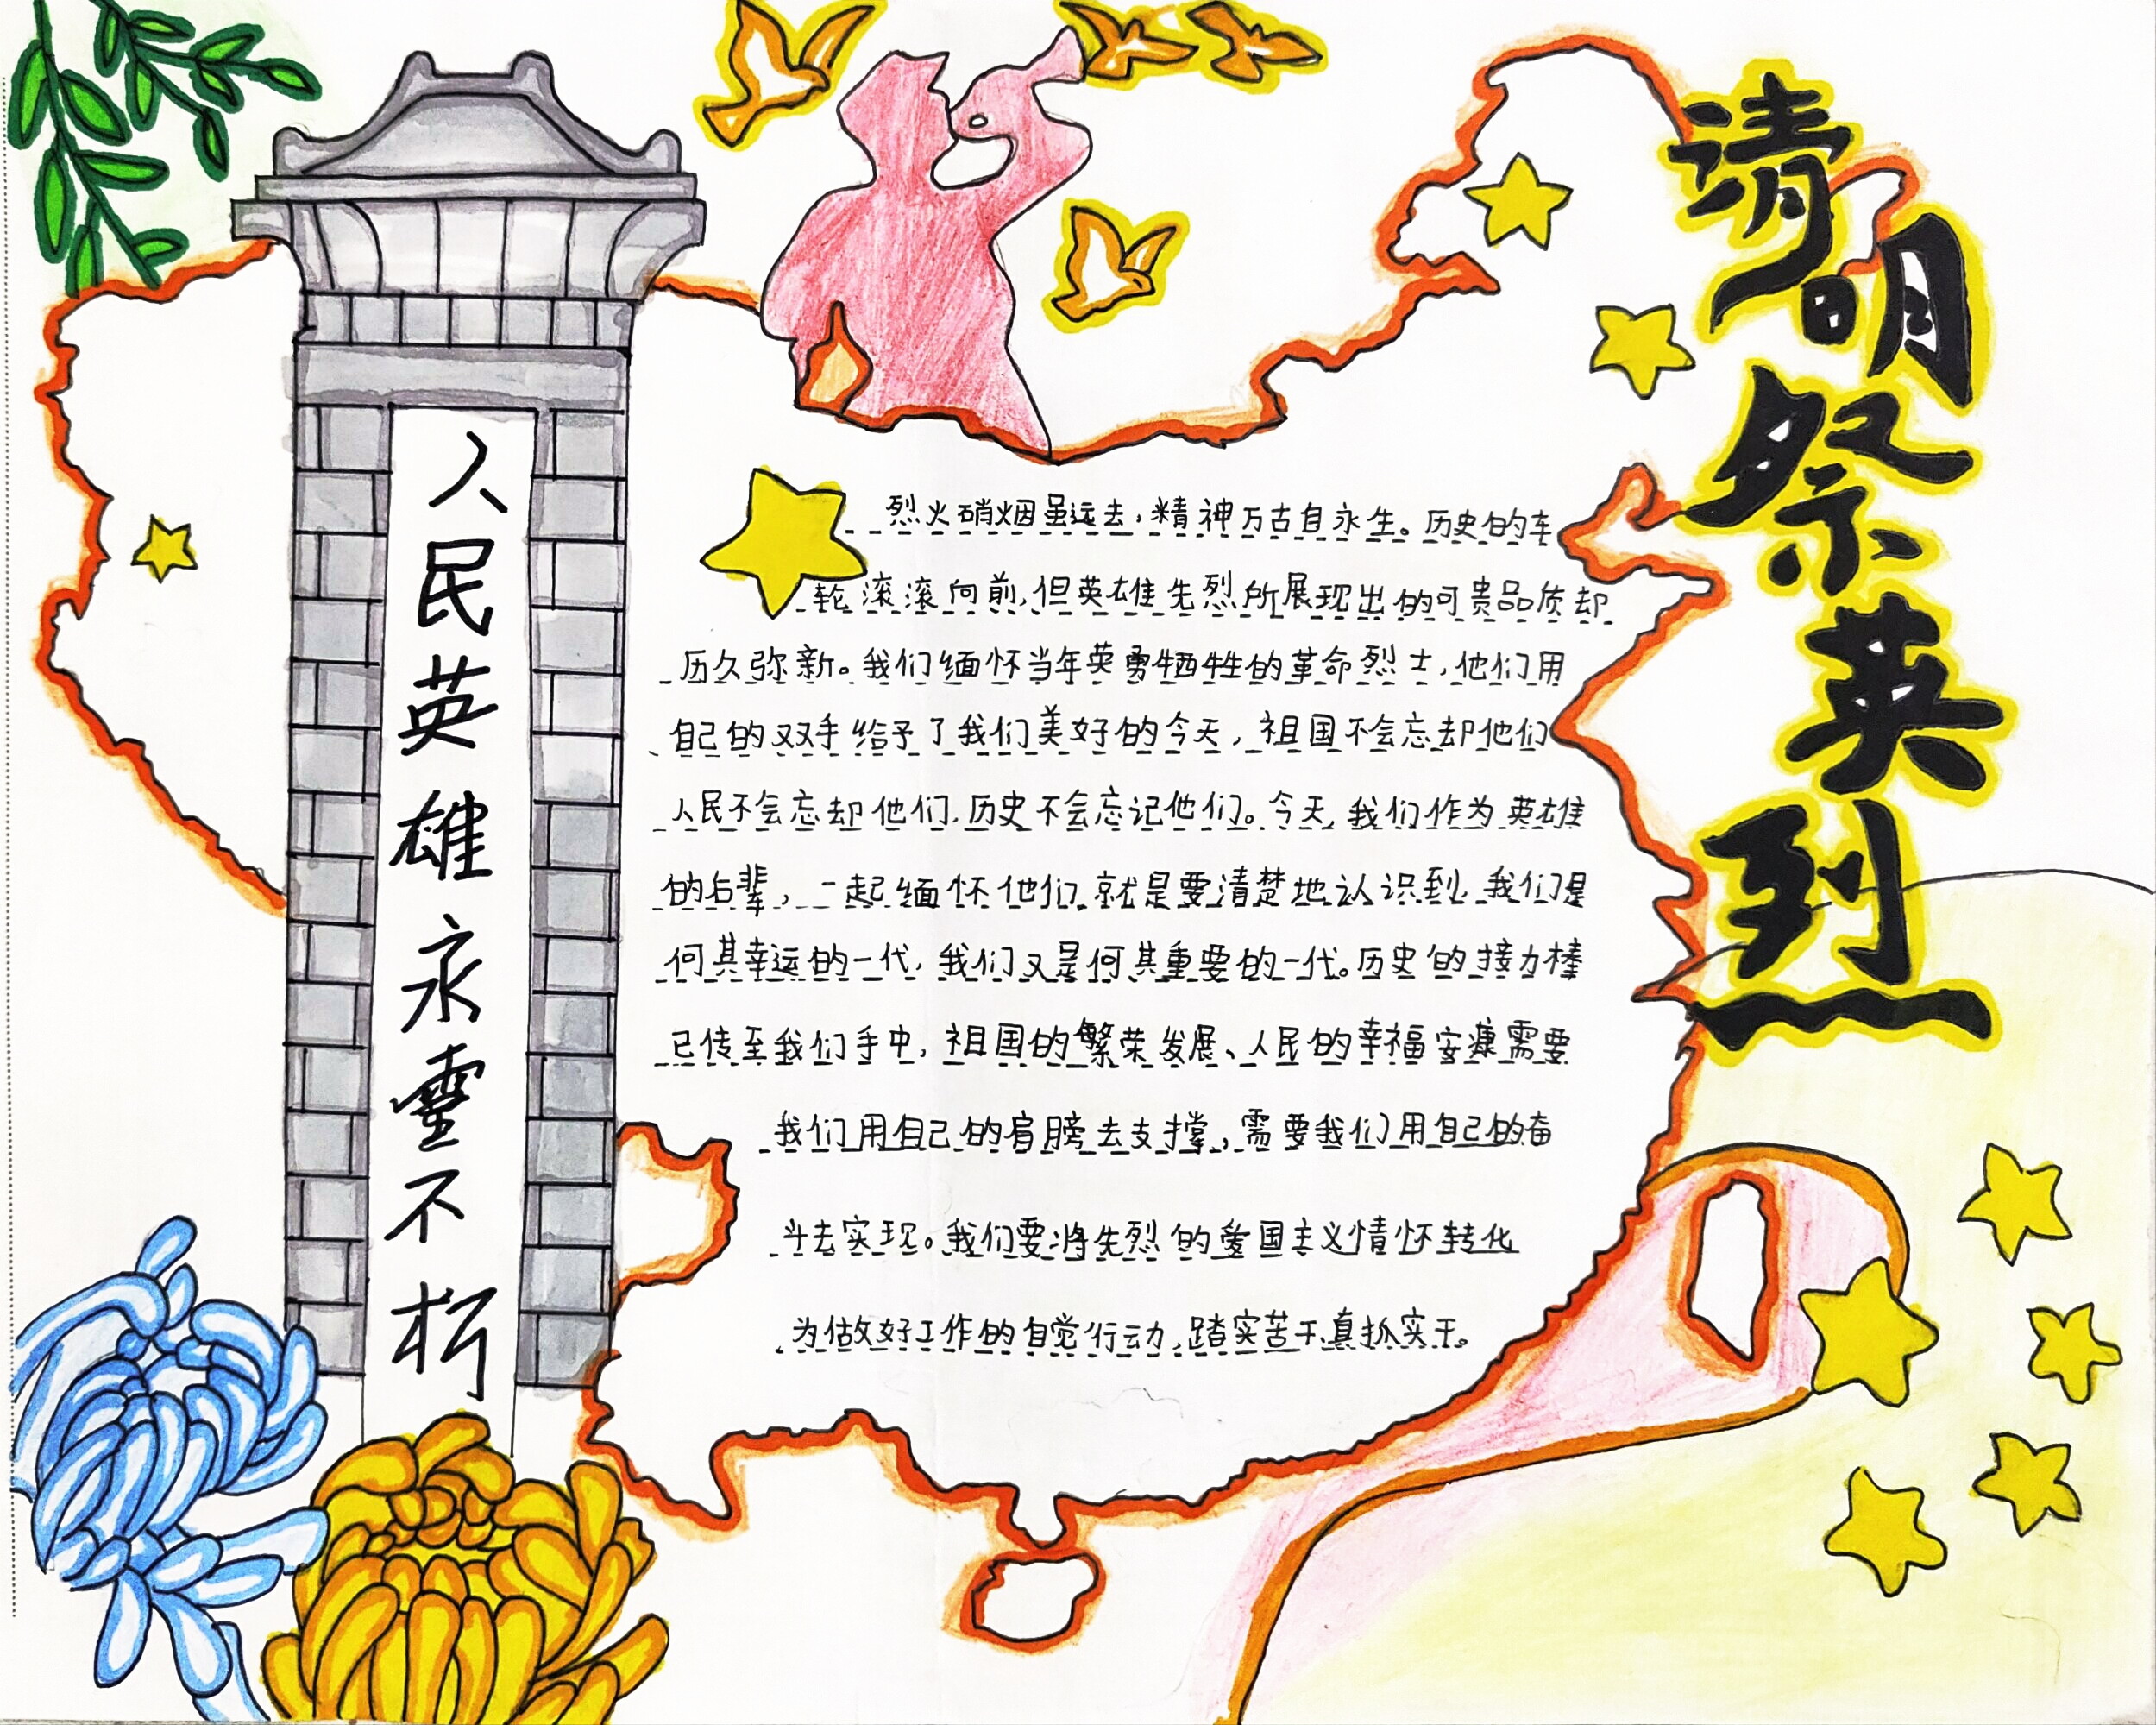 清明祭英烈
人民英雄永垂不朽
烈火硝烟虽远去，精神万古自永生。历史的车
轮滚滚向前，但英雄先烈所展现出的可贵品质却
历久弥新。我们缅怀当年英勇牺牲的革命烈士，他们用
自己的双手给予了我们美好的今天，祖国不会忘却他们
人民不会忘却他们，历史不会忘记他们。今天，我们作为英雄
的后辈，一起缅怀他们，就是要清楚地认识到，我们是
何其幸运的一代，我们又是何其重要的一代。历史的接力棒
已传至我们手中，祖国的繁荣发展、人民的幸福安康需要
我们用自己的肩膀去支撑，需要我们用自己的奋
斗去实现。我们要将先烈的爱国主义情怀转化
为做好工作的自觉行动，踏实苦干，真抓实干。